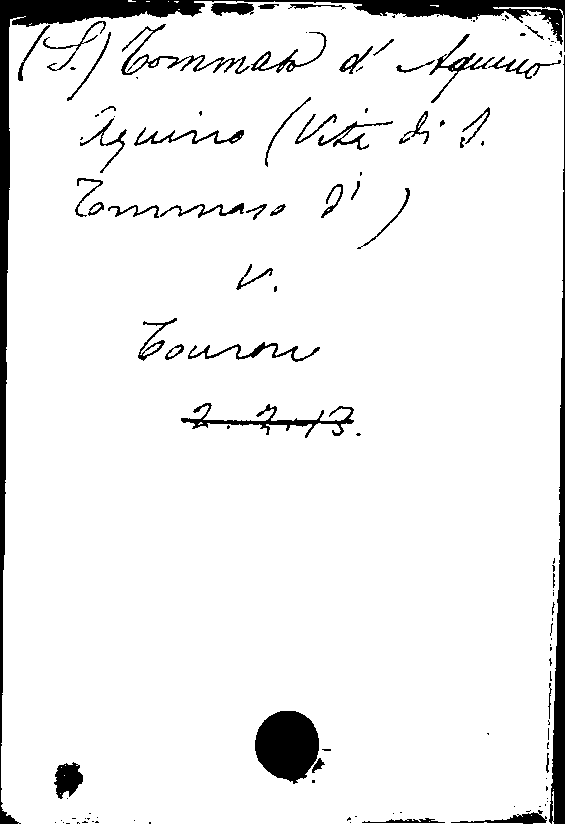 (S.) Tommaso d' Aquino
Aquino (Vita di S.
Tommaso d')
V.
Touron
2. 2. 13.